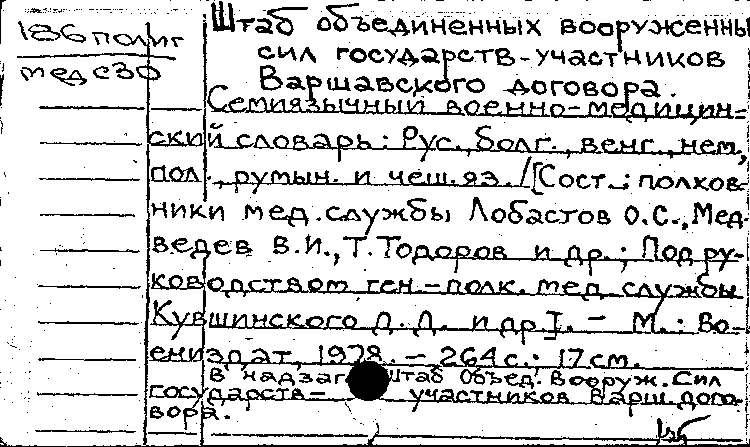 186 полиг
мед с30
Штаб объединенных вооруженны
сил государств-участников
Варшавского договора.
Семиязычный военно-медицин-
ский словарь: Рус., болг., венг., нем.,
пол., румын. и чеш. яз. /[Сост.: полков-
ники мед. службы Лобастов О.С., Мед-
ведев В.И., Т. Тодоров и др.; Под ру-
ководством ген-полк. мед службы
Кувшинского Д.Д. и др]. - М.: Во-
ениздат, 1978. - 264 с.; 17 см.
В надзаг Штаб Объед. Вооруж. Сил
государств- участников Варш. дого-
вора.